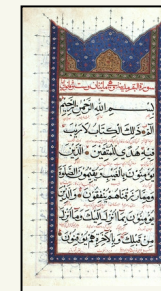 بسم الله الرحمن الرحيم
الم ذلك الكتاب لا ريب
فيه هدى للمتقين الذين
يؤمنون بالغيب ويقيمون الصلوة
ومما رزقناهم ينفقون والذين
يؤمنون بما انزل اليك وما انزل
من قبلك وبالآخرة هم يوقنون